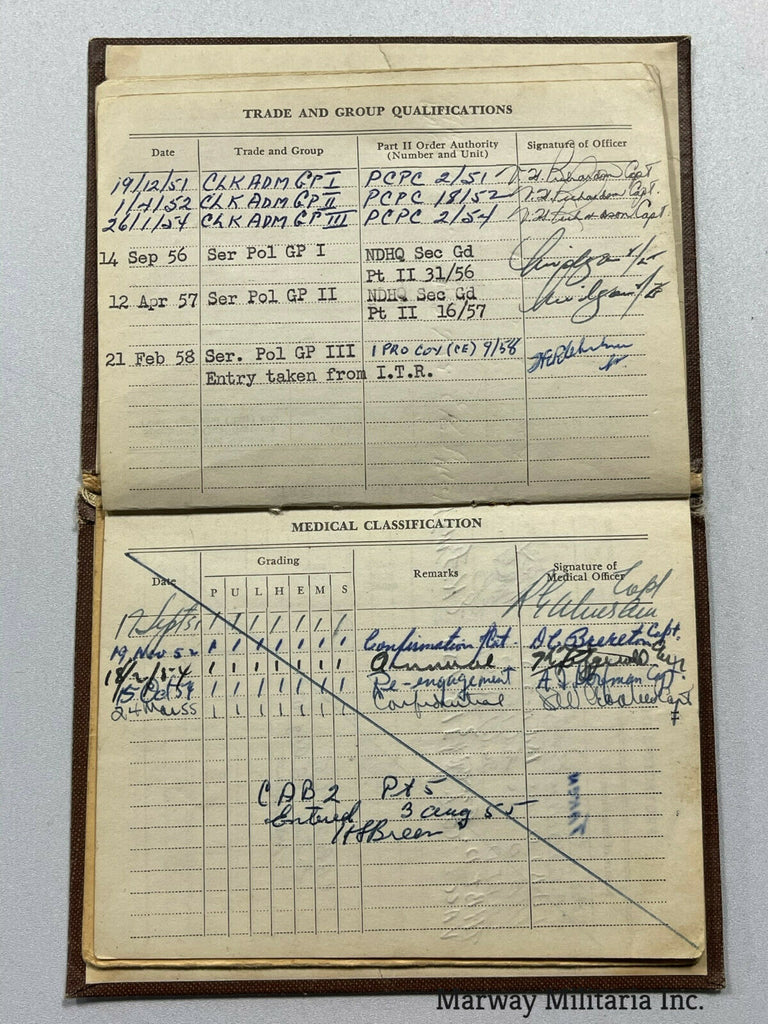 TRADE AND GROUP QUALIFICATIONS
Date Trade and Group Part II Order Authority (Number and Unit) Signature of Officer
19/12/51 CLK ADM GP I PCPC 2/51 Capt
1/4/52 CLK ADM GP II PCPC 18/52 Richardson Capt.
26/1/54 CLK ADM GP III PCPC 2/54 Richardson Capt
14 Sep 56 Ser Pol GP I NDHQ Sec Gd
Pt II 31/56
12 Apr 57 Ser Pol GP II NDHQ Sec Gd
Pt II 16/57
21 Feb 58 Ser. Pol GP III 1 PRO COY (CE) 9/58
Entry taken from I.T.R.
MEDICAL CLASSIFICATION
Date Grading Remarks Signature of Medical Officer
P U L H E M S
17 Sept 51 1 1 1 1 1 1 1 Capt
19 Nov 52 1 1 1 1 1 1 1 Capt.
1 1 1 1 1 1 1 Annual
15 Oct 54 1 1 1 1 1 1 1 Re-engagement Capt
24 Mar 55 1 1 1 1 1 1 1 Capt
CAB 2 Pt 5
Entered 3 Aug 55
Breen
Marway Militaria Inc.